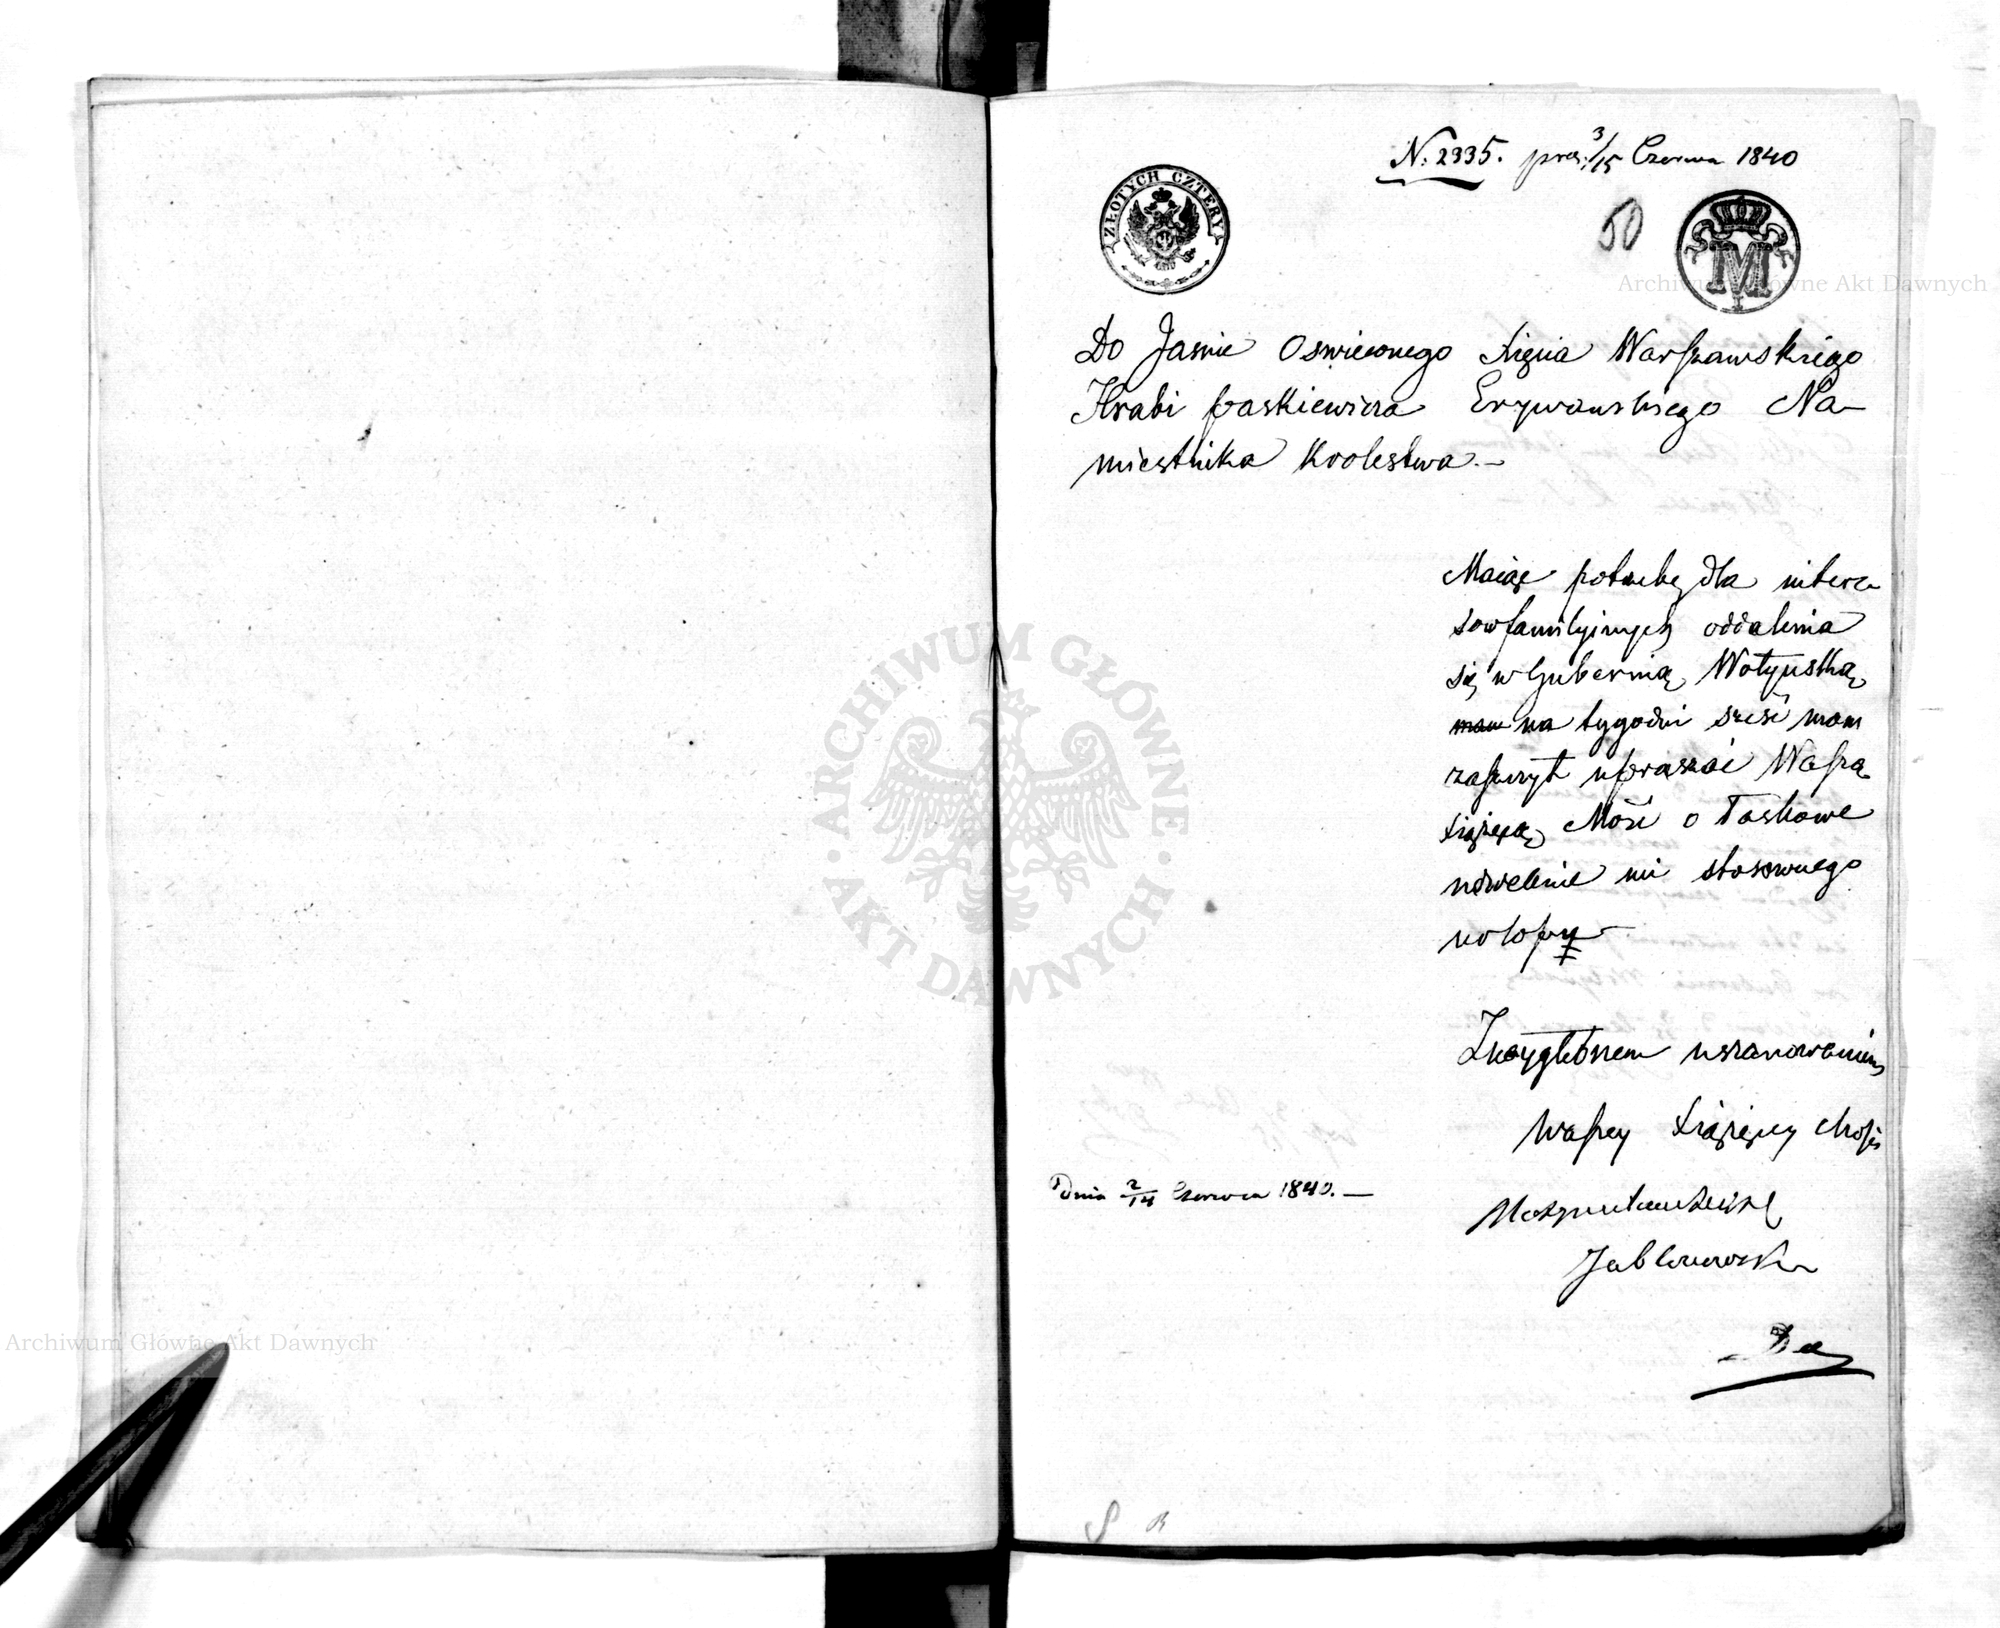 N: 2335. prez: 3/15 Czerwca 1840
ZŁOTYCH CZTERY
50
M
Do Jasnie Oswieconego Xięcia Warszawskiego
Hrabi Paskiewicza Erywanskiego Na-
miestnika Krolestwa.-
Maiąc potrzebę dla intere-
sow familyinych oddalenia
się w Gubernią Wołynską
na tygodni szesć mam
zaszczyt upraszać Waszą
Xiążęcą Mość o łaskawe
udzielenie mi stosownego
urlopu
Z naygłębszem uszanowaniem
Waszey Xiążęcey Mości
Dnia 2/14 Czerwca 1840.-
Jabłonowski
Archiwum Główne Akt Dawnych
ARCHIWUM GŁÓWNE
AKT DAWNYCH
Archiwum Główne Akt Dawnych